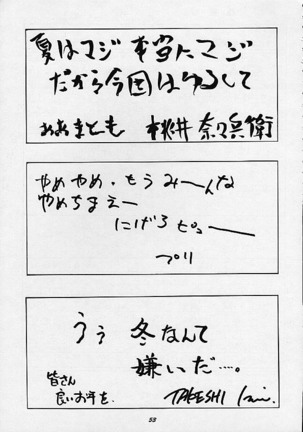 夏はマジ 本当にマジ
だから今回はゆるして
おおまとも 桃井 奈々兵衛
やめやめ・もうみ〜んな
やめちまえー
にげろ ピューー
プリ
うぅ 冬なんて
嫌いだ…。
皆さん
良いお年を.
TAKESHI
53